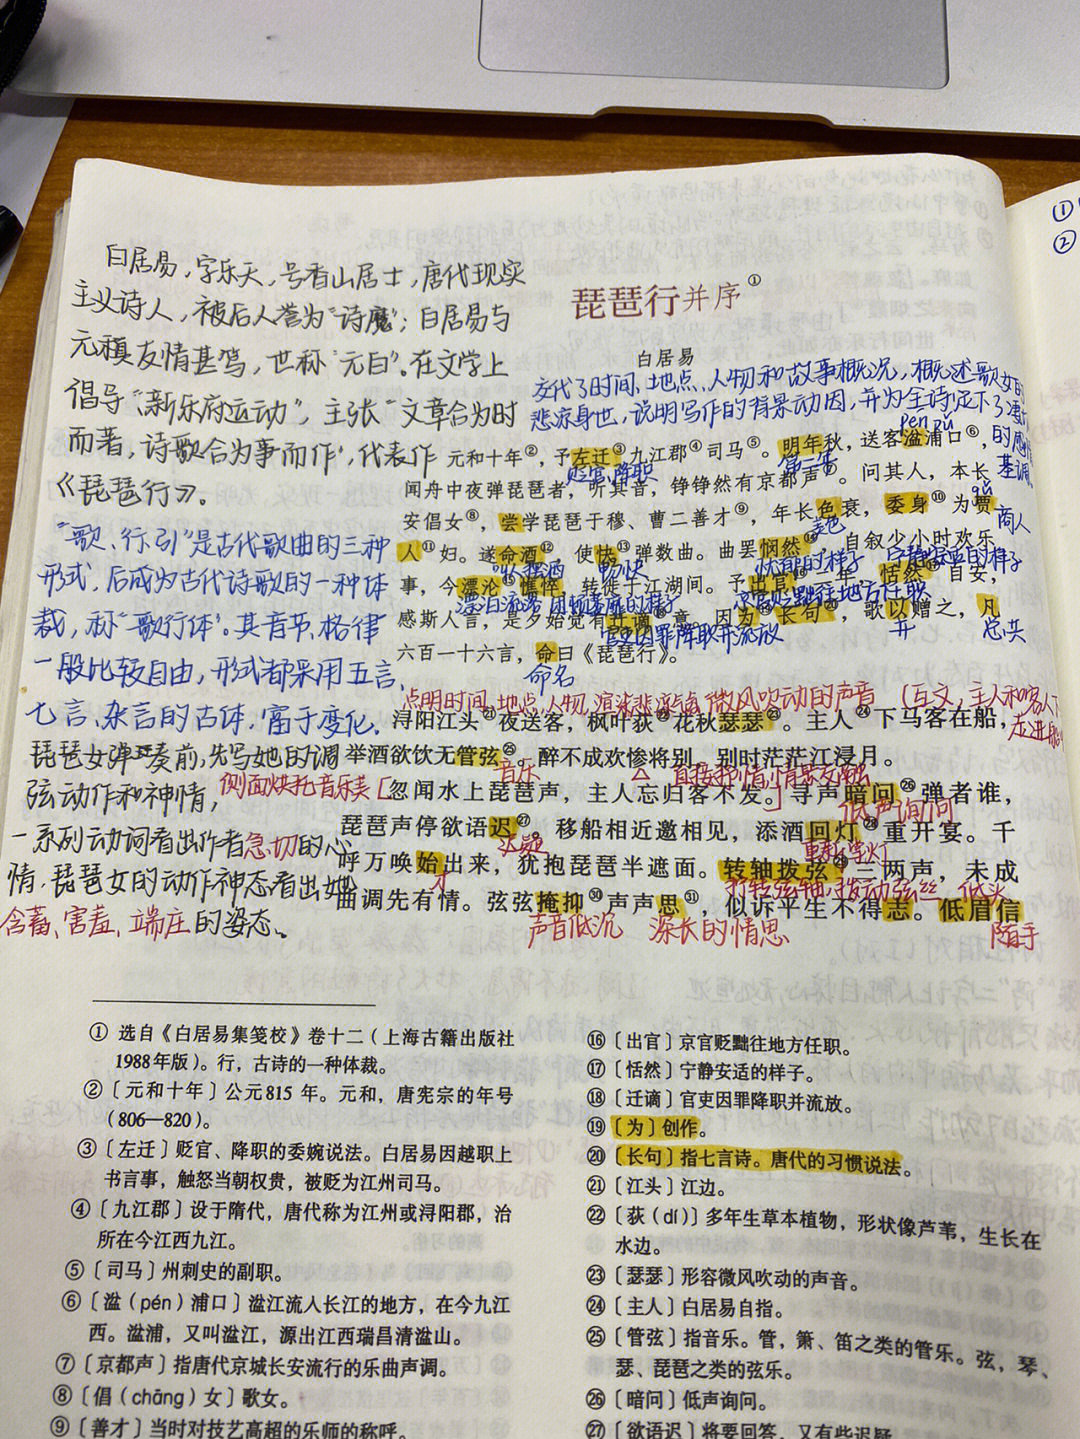 白居易,字乐天,号香山居士,唐代现实
主义诗人,被后人誉为“诗魔”;白居易与
元稹友情甚笃,世称“元白”。在文学上
倡导“新乐府运动”,主张“文章合为时
而著,诗歌合为事而作”,代表作
《琵琶行》。
“歌、行、引”是古代歌曲的三种
形式,后成为古代诗歌的一种体
裁,称“歌行体”。其音节、格律
一般比较自由,形式都采用五言、
七言、杂言的古体,富于变化。
琵琶女弹奏前,先写她的调
弦动作和神情,
一系列动词看出作者急切的心
情,琵琶女的动作神态看出她
含蓄、害羞、端庄的姿态、
琵琶行并序①
白居易
交代了时间、地点、人物和故事概况,概述歌女的
悲凉身世,说明写作的背景动因,并为全诗定下了凄
的感情
基调
pén pǔ
元和十年②,予左迁③九江郡④司马⑤。明年秋,送客湓浦口⑥,
贬官,降职
第二年
闻舟中夜弹琵琶者,听其音,铮铮然有京都声⑦。问其人,本长
安倡女⑧,尝学琵琶于穆、曹二善才⑨,年长色衰,委身⑩为贾
商人
人⑪妇。遂命酒⑫,使快⑬弹数曲。曲罢悯然⑭,自叙少小时欢乐
叫人摆酒
畅快
忧郁的样子
宁静安适的样子
事,今漂沦⑮憔悴,转徙于江湖间。予出官⑯二年,恬然⑰自安,
漂泊流落
困顿萎靡的样子
京官贬黜往地方任职
感斯人言,是夕始觉有迁谪⑱意。因为⑲长句⑳,歌以赠之,凡
官吏因罪降职并流放
总共
六百一十六言,命曰《琵琶行》。
命名
点明时间、地点、人物,渲染悲凉气氛
微风吹动的声音
(互文,主人和客人下
浔阳江头㉑夜送客,枫叶荻㉒花秋瑟瑟㉓。主人㉔下马客在船,
举酒欲饮无管弦㉕。醉不成欢惨将别,别时茫茫江浸月。
音乐
直接抒情,情景交融
侧面烘托音乐美[忽闻水上琵琶声,主人忘归客不发。]寻声暗问㉖弹者谁,
低声询问
琵琶声停欲语迟㉗。移船相近邀相见,添酒回灯㉘重开宴。千
迟疑
呼万唤始出来,犹抱琵琶半遮面。转轴拨弦㉙三两声,未成
才
打转弦轴,拨动弦丝
低头
曲调先有情。弦弦掩抑㉚声声思㉛,似诉平生不得志。低眉信
声音低沉
深长的情思
随手
① 选自《白居易集笺校》卷十二(上海古籍出版社
1988年版)。行,古诗的一种体裁。
②〔元和十年〕公元815年。元和,唐宪宗的年号
(806—820)。
③〔左迁〕贬官、降职的委婉说法。白居易因越职上
书言事,触怒当朝权贵,被贬为江州司马。
④〔九江郡〕设于隋代,唐代称为江州或浔阳郡,治
所在今江西九江。
⑤〔司马〕州刺史的副职。
⑥〔湓(pén)浦口〕湓江流入长江的地方,在今九江
西。湓浦,又叫湓江,源出江西瑞昌清湓山。
⑦〔京都声〕指唐代京城长安流行的乐曲声调。
⑧〔倡(chāng)女〕歌女。
⑨〔善才〕当时对技艺高超的乐师的称呼。
⑯〔出官〕京官贬黜往地方任职。
⑰〔恬然〕宁静安适的样子。
⑱〔迁谪〕官吏因罪降职并流放。
⑲〔为〕创作。
⑳〔长句〕指七言诗。唐代的习惯说法。
㉑〔江头〕江边。
㉒〔荻(dí)〕多年生草本植物,形状像芦苇,生长在
水边。
㉓〔瑟瑟〕形容微风吹动的声音。
㉔〔主人〕白居易自指。
㉕〔管弦〕指音乐。管,箫、笛之类的管乐。弦,琴、
瑟、琵琶之类的弦乐。
㉖〔暗问〕低声询问。
㉗〔欲语迟〕将要回答,又有些迟疑
①
②